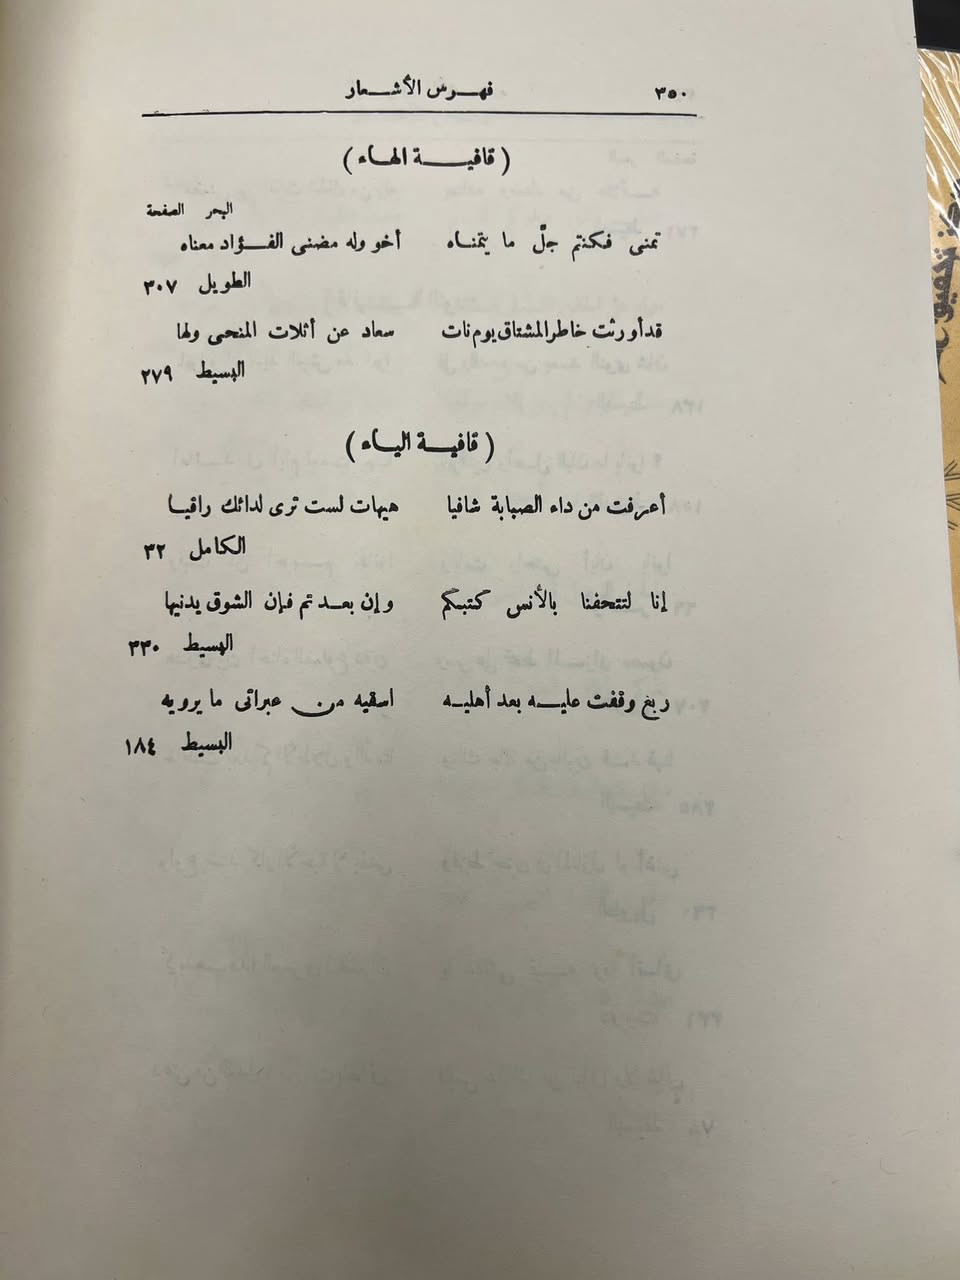 ٣٥٠ فهرس الأشعار
( قافية الهاء )
البحر الصفحة
تمنى فكنتم جلّ ما يتمناه أخو وله مضنى الفؤاد معناه
الطويل ٣٠٧
قد أورثت خاطر المشتاق يوم نات سعاد عن أثلات المنحى ولها
البسيط ٢٧٩
( قافية الياء )
أعرفت من داء الصبابة شافيا هيهات لست ترى لدائك راقيا
الكامل ٣٢
إنا لتتحفنا بالأنس كتبكم وإن بعدتم فإن الشوق يدنيها
البسيط ٣٣٠
ربع وقفت عليه بعد أهليه اسقيه من عبراتى ما يرويه
البسيط ١٨٤